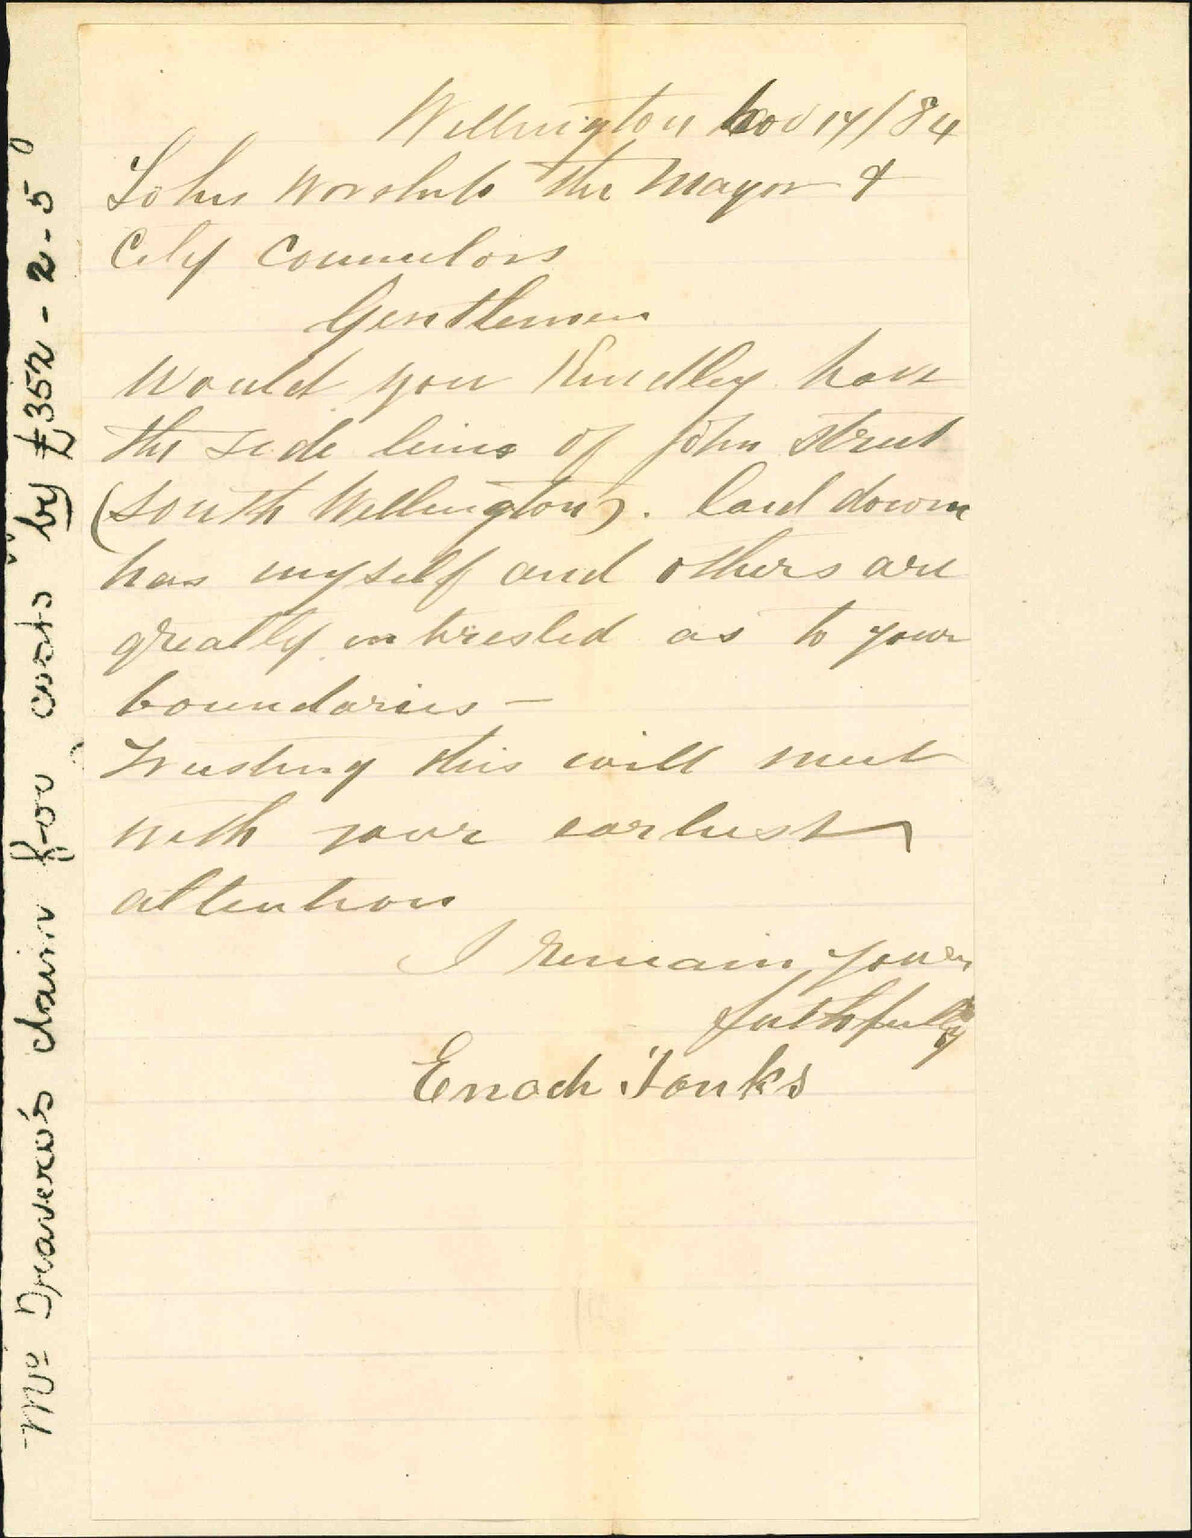 Wellington Nov 17/84
To his Worship the Mayor &
City Counculors
Gentlemen
Would you Kindley have
the side lines of John Street
(South Wellington). laid down
has myself and others are
greatly intrested as to your
boundaries —
Trusting this will meet
with your earliest
attention
I remain yours
faithfully
Enoch Tonks
Mrs Travers's claim for costs by £352-2-5